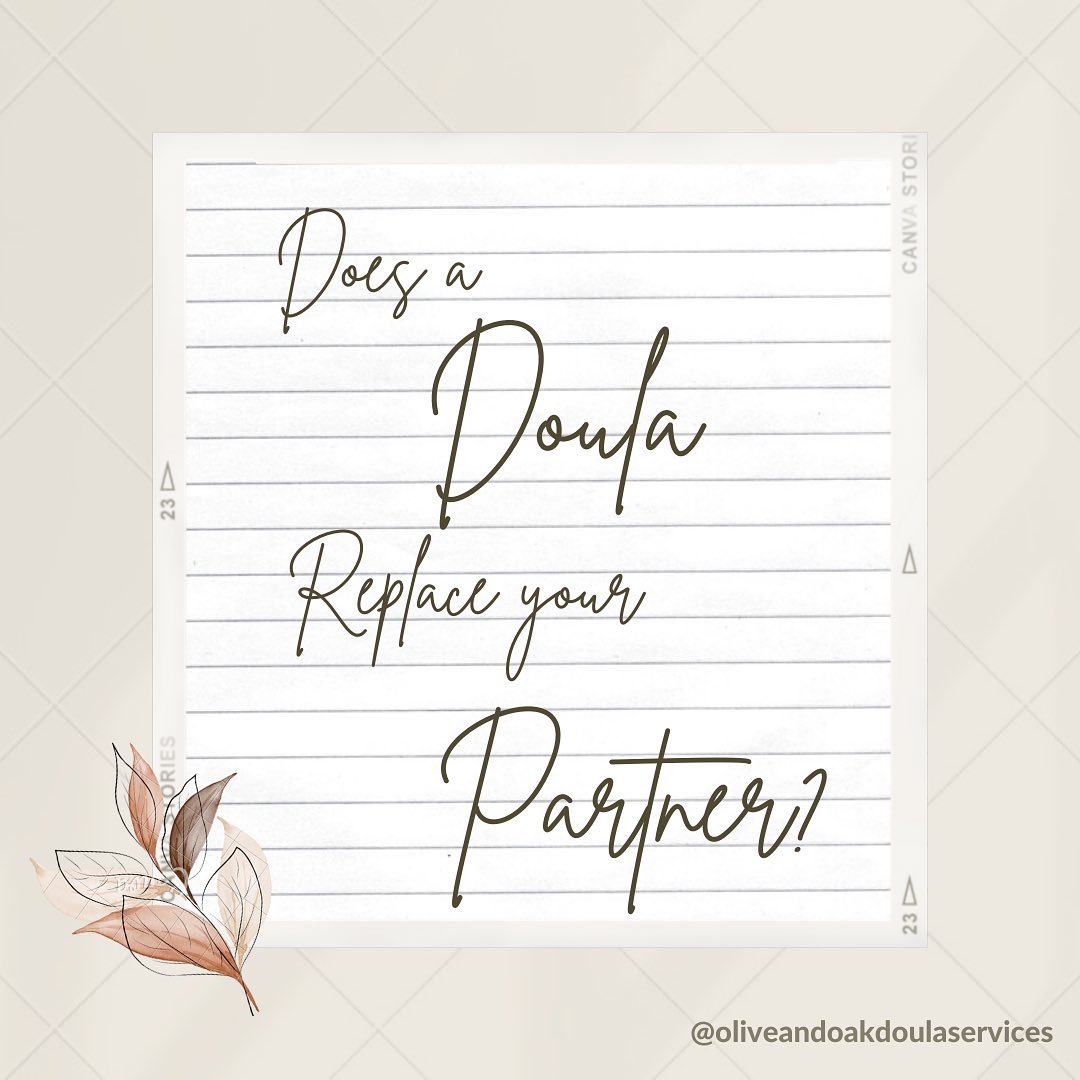 Does a
Doula
Replace your
Partner?
CANVA STORI
23
23
@oliveandoakdoulaservices